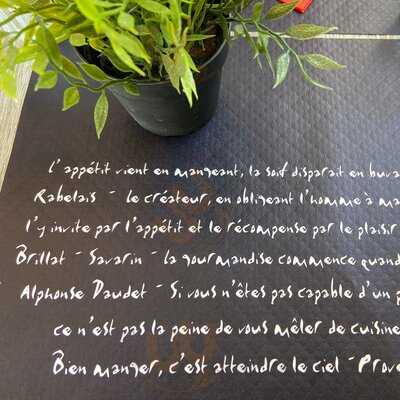 L'appétit vient en mangeant, la soif disparait en buva
Rabelais - Le créateur, en obligeant l'homme à ma
l'y invite par l'appétit et le récompense par le plaisir
Brillat - Savarin - La gourmandise commence quand
Alphonse Daudet - Si vous n'êtes pas capable d'un p
ce n'est pas la peine de vous mêler de cuisine
Bien manger, c'est atteindre le ciel - Prove